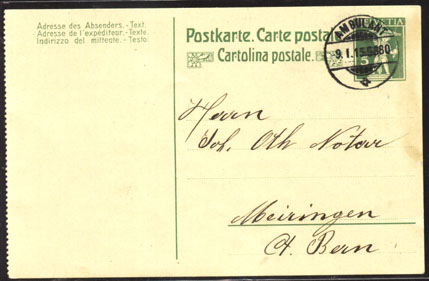 Adresse des Absenders.-Text.
Adresse de l'expéditeur.-Texte.
Indirizzo del mittente.-Testo.
Postkarte. Carte posta
Cartolina postale.
AMBULANT
9.I.15
HELVETIA
5
Herrn
Joh. Oth Notar
Meiringen
Ct. Bern